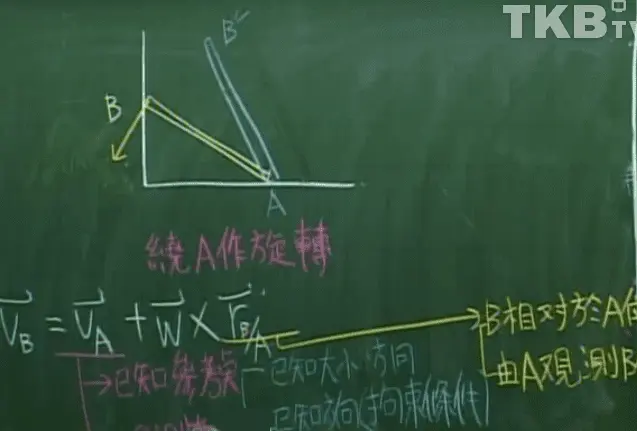 TKB TV
B'
B
A
繞A作旋轉
V_B = V_A + W × r_B/A
B相對於A
由A觀測B
已知參考點
已知大小方向
已知方向(拘束條件)